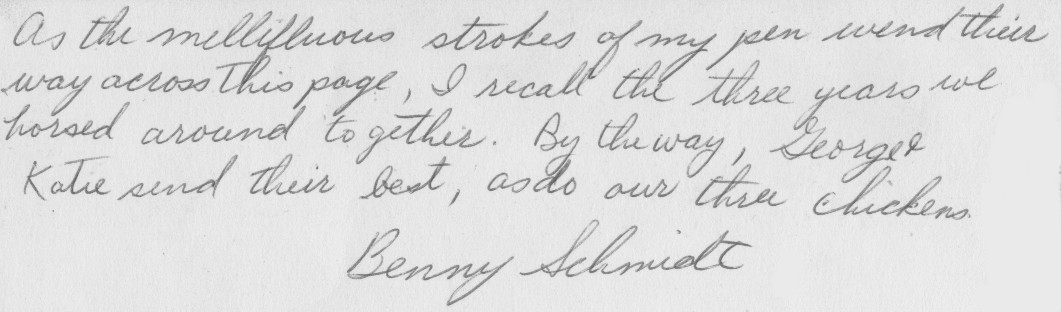 As the mellifluous strokes of my pen wend their
way across this page, I recall the three years we
horsed around together. By the way, George &
Katie send their best, as do our three chickens.
Benny Schmidt